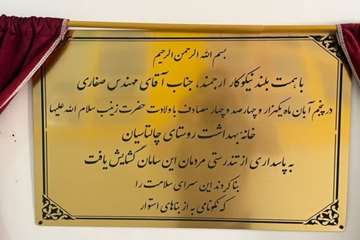 بسم الله الرحمن الرحیم
با همت بلند نیکوکار ارجمند، جناب آقای مهندس صفاری
در پنجم آبان ماه یکهزار و چهارصد و چهار مصادف با ولادت حضرت زینب سلام الله علیها
خانه بهداشت روستای چالتاسیان
به پاسداری از تندرستی مردمان این سامان گشایش یافت
بنا کردند این سرای سلامت را
که نکونامی به از بناهای استوار